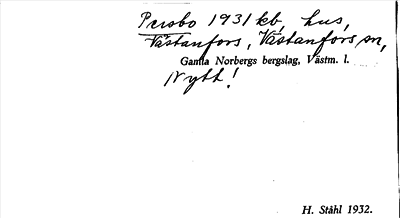 Persbo 1931 kb, hus,
Västanfors, Västanfors sn,
Gamla Norbergs bergslag, Västm. l.
Nytt!
H. Ståhl 1932.